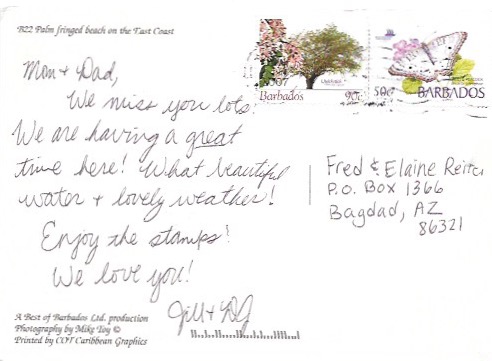 B22 Palm fringed beach on the East Coast
Mom + Dad,
We miss you lots.
We are having a great
time here! What beautiful
water + lovely weather!
Enjoy the stamps!
We love you!
Jill + DJ
A Best of Barbados Ltd. production
Photography by Mike Toy ©
Printed by COT Caribbean Graphics
BARBADOS
90c
50c
BARBADOS
Fred & Elaine Reiter
P.O. Box 1366
Bagdad, AZ
86321